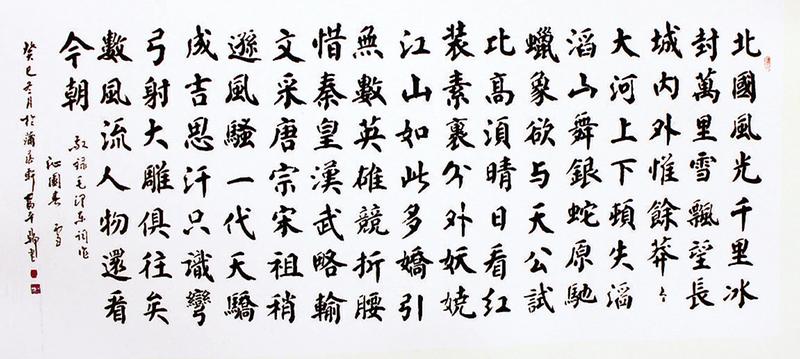 北國風光千里冰
封萬里雪飄望長
城内外惟餘莽々
大河上下頓失滔
滔山舞銀蛇原馳
蠟象欲与天公試
比高湏晴日看紅
裝素裹分外妖嬈
江山如此多嬌引
無數英雄競折腰
惜秦皇漢武略輸
文采唐宗宋祖稍
遜風騷一代天驕
成吉思汗只識彎
弓射大雕俱往矣
數風流人物還看
今朝
敬録毛澤東詞作
沁園春 雪
癸巳冬月於